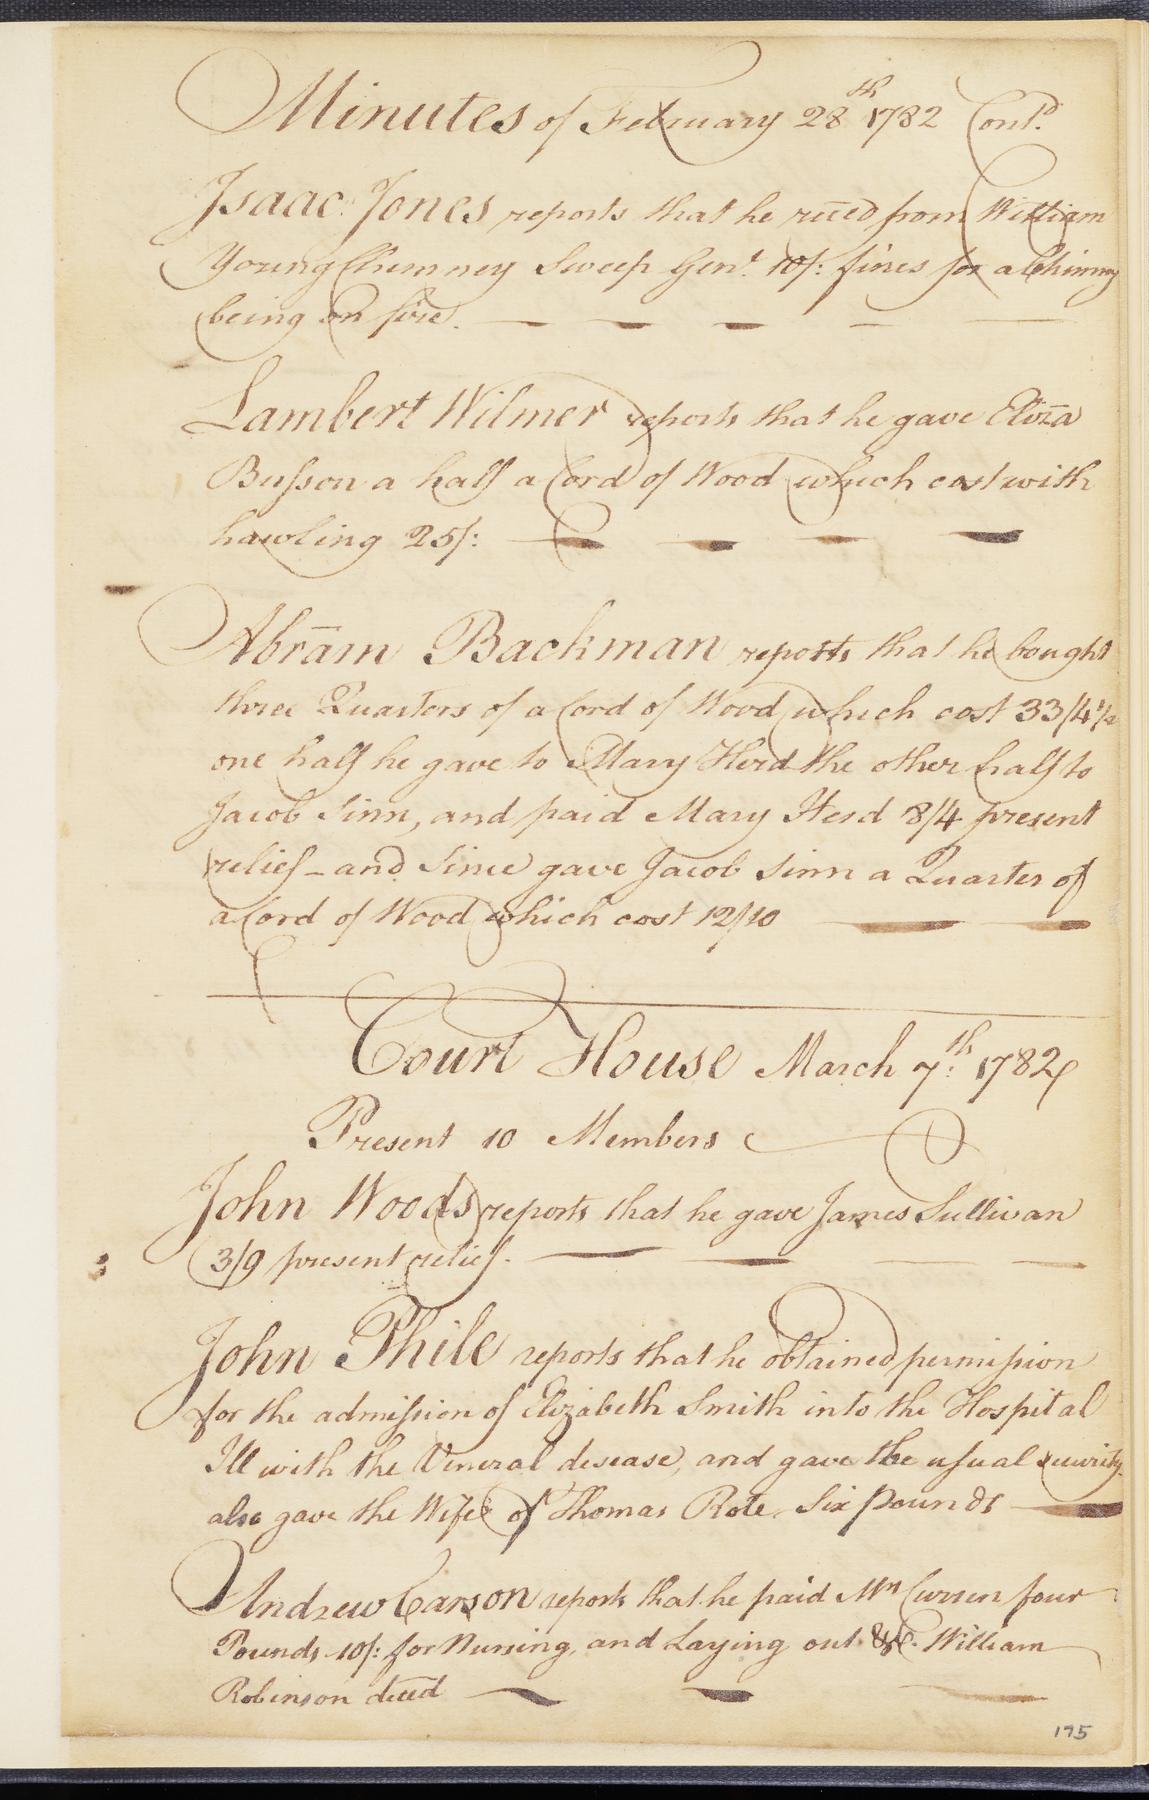 Minutes of February 28th 1782 Contd.
Isaac Jones reports that he rec̄ed from William
Young Chimney Sweep Genl. 10/: fines for a Chimney
being on fire.
Lambert Wilmer reports that he gave Eliz̄a
Busson a half a Cord of Wood which cost with
hawling 25/:
Abrām Backman reports that he bought
three Quarters of a Cord of Wood which cost 33/4½
one half he gave to Mary Herd the other half to
Jacob Sinn, and paid Mary Herd 8/4 present
relief - and Since gave Jacob Sinn a Quarter of
a Cord of Wood which cost 12/10
Court House March 7th: 1782
Present 10 Members
John Woods reports that he gave James Sullivan
3/9 present relief.
John Phile reports that he obtained permission
for the admission of Elizabeth Smith into the Hospital
Ill with the Veneral desease, and gave the usual security
also gave the Wife of Thomas Rote Six pounds
Andrew Carson reports that he paid Mrs Curren four
Pounds 10/: for Nursing, and Laying out &c. William
Robinson deced
175